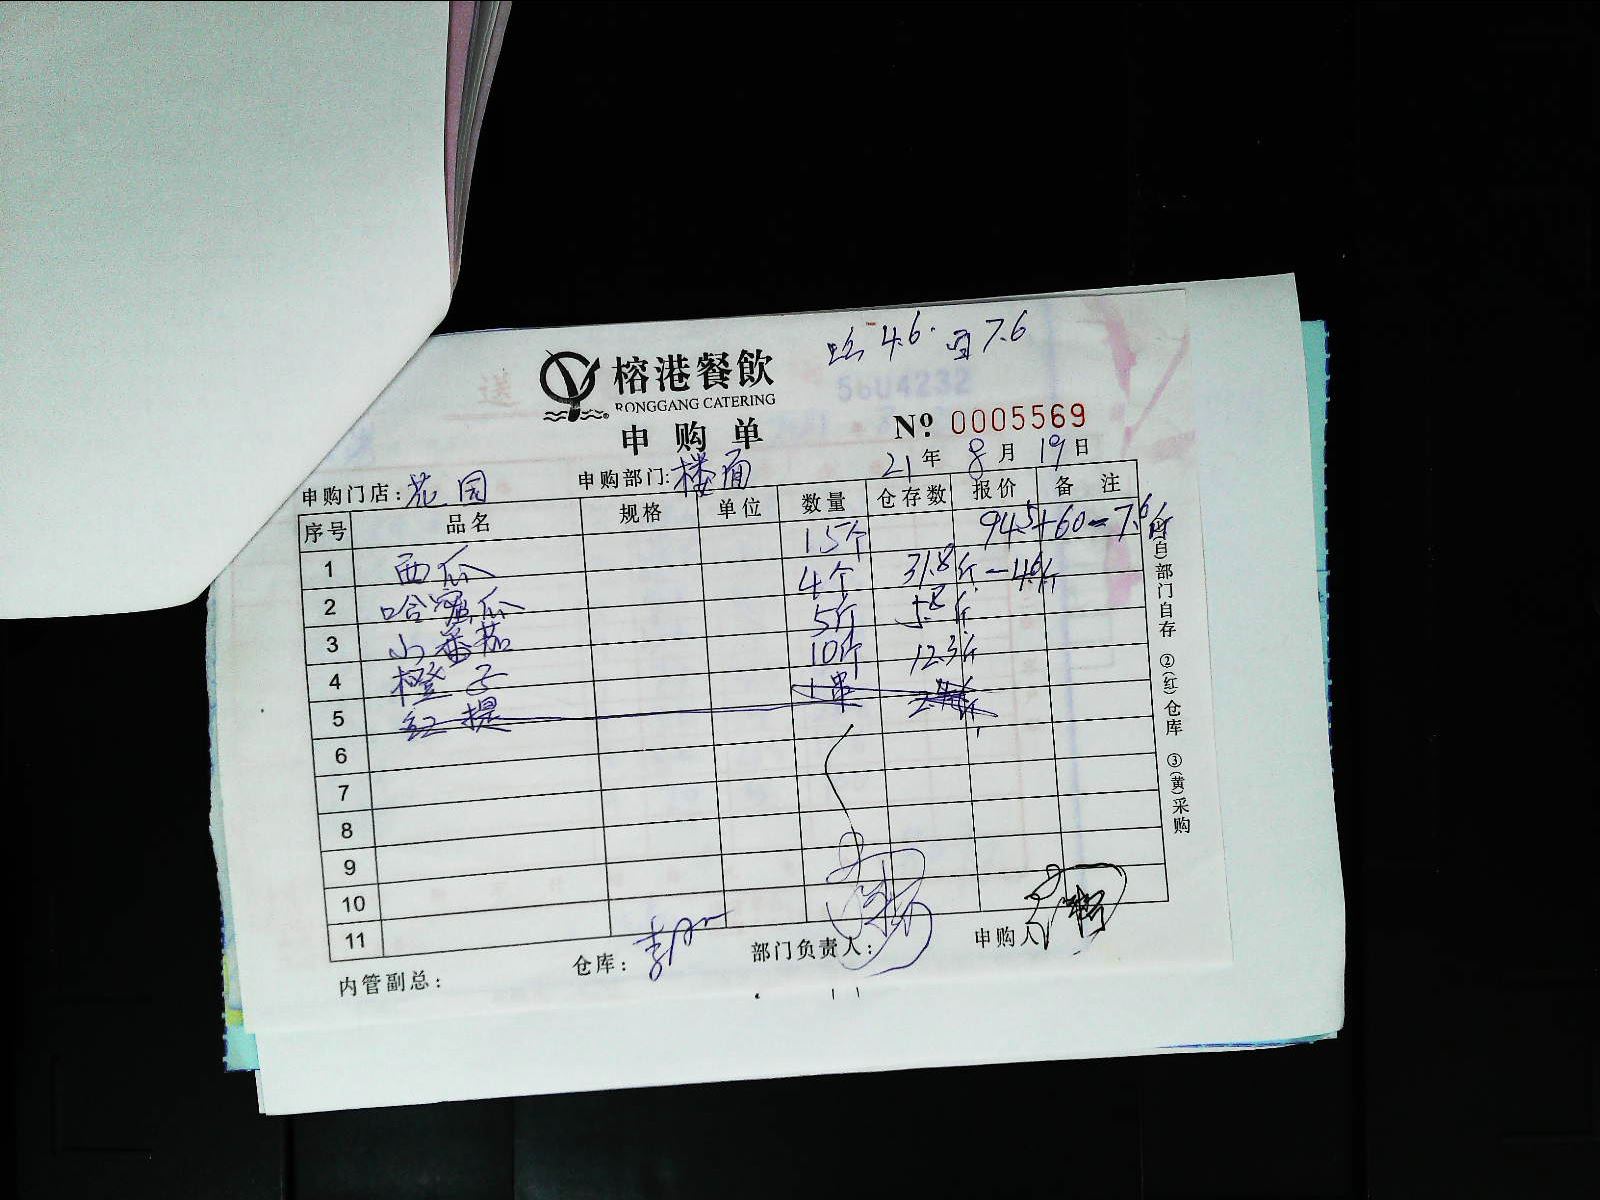 4.6. 西7.6
榕港餐飲
RONGGANG CATERING
申购单
5604232
送
№ 0005569
21年 8月 19日
申购门店:花园 申购部门:楼面
序号 品名 规格 单位 数量 仓存数 报价 备注
1 西瓜 15个 94.5+60-7.6斤
2 哈密瓜 4个 31.8斤-4.6斤
3 小番茄 5斤 5.8斤
4 橙子 10斤 12.3斤
5 红提 1串
6
7
8
9
10
11
内管副总: 仓库: 部门负责人: 申购人
自)部门自存 ②(红)仓库 ③(黄)采购